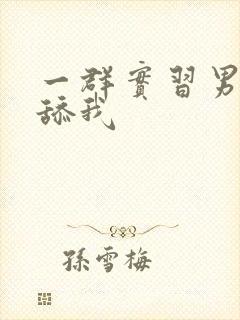 一群實習男
舔我
孫雪梅